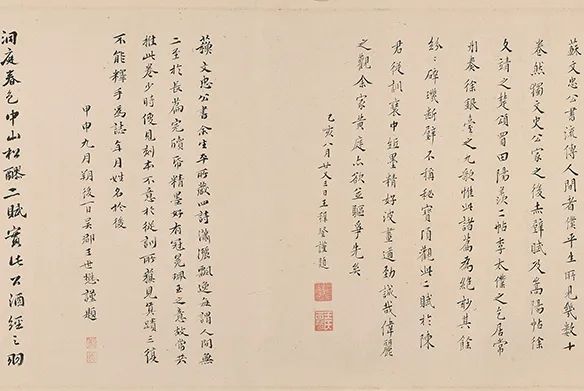 蘇文忠公書流傳人間者僕平生所見幾數十
卷然獨文史公家之後赤壁賦及嵩陽帖徐
文靖之楚頌買田陽羨二帖李太僕之乞居常
州奏徐銀臺之九歌惟此諸篇為絕妙其餘
紛〻碎璞斷璧不稱秘寶頃觀此二賦於陳
君從訓褱中紙墨精好波畫遒勁誠哉偉麗
之觀余家黃庭亦欲並驅爭先矣
乙亥八月廿又三日王穉登謹題
蘇文忠公書余生平所藏四詩瀟灑飄逸無謂人間無
二至於長篇完牘帋精墨好有冠冕珮玉之意故當共
推此卷少時僅見刻本不意於從訓所獲見真蹟三復
不能釋手為誌年月姓名於後
甲申九月朔後一日吳郡王世懋謹題
洞庭春色中山松醪二賦實此公酒經之羽